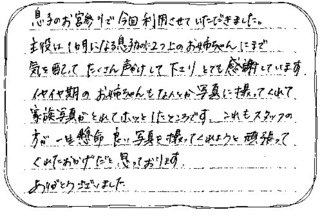 息子のお宮参りで今回利用させていただきました。
主役は1ヶ月になる息子が2つ上のお姉ちゃんにまで
気を配って たくさん声かけして下さり とても感謝しています
イヤイヤ期の お姉ちゃんもなんとか写真に撮ってくれて
家族写真がとれてホッとしたところです。これもスタッフの
方が一生懸命 良い写真を撮ってくれようと頑張って
くれたおかげだと思っております。
ありがとうございました